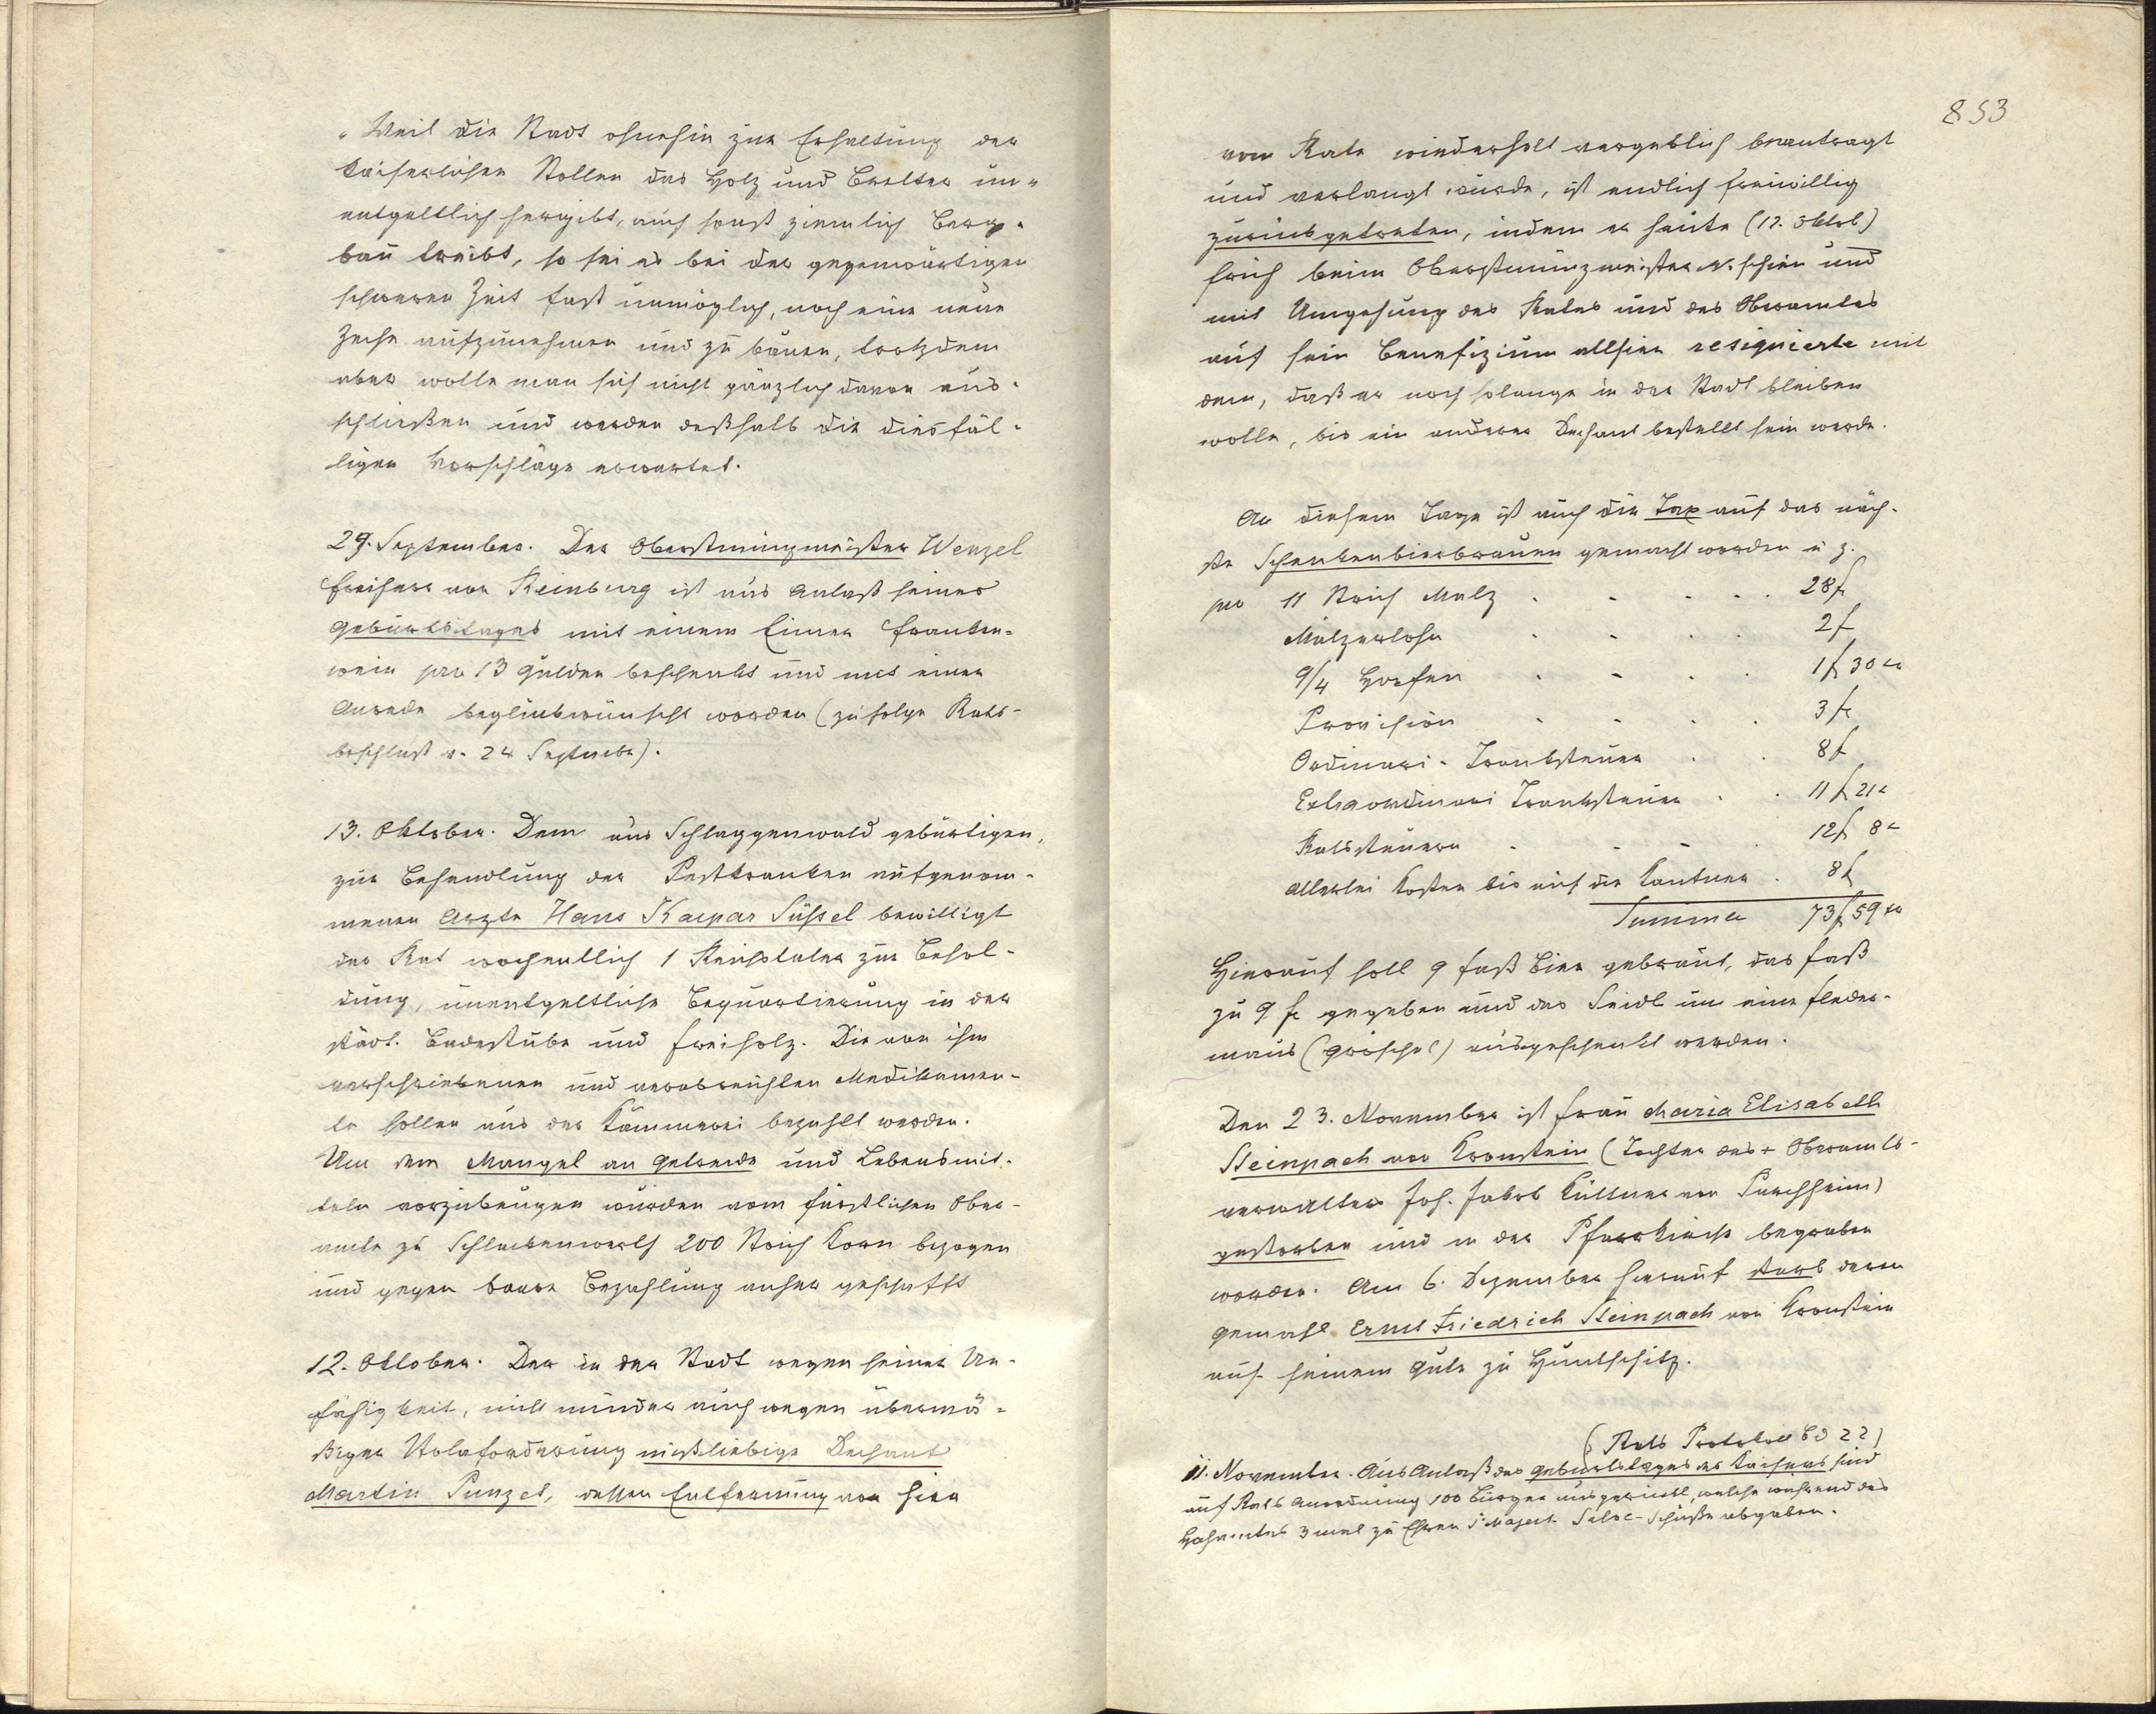 „Weil die Stadt ohnehin zur Erhaltung der
kaiserlichen Stollen das Holz und Bretter un-
entgeltlich hergibt, auch sonst ziemlich Berg-
bau treibt, so sei es bei der gegenwärtigen
schweren Zeit fast unmöglich, noch eine neue
Zeche aufzunehmen und zu bauen, trotzdem
aber wolle man sich nicht gänzlich davon aus-
schließen und werden deßhalb die diesfäl-
ligen Vorschläge erwartet.
29. September. Der Oberstmünzmeister Wenzel
Freiherr von Reinburg ist aus Anlaß seines
Geburtstages mit einem Eimer Franken-
wein per 13 Gulden beschenkt und mit einer
Anrede beglückwünscht worden (zufolge Rats-
beschluß v. 24 September).
13. Oktober. Dem aus Schlaggenwald gebürtigen,
zur Behandlung der Pestkranken aufgenom-
menen Arzte Hans Kaspar Süssel bewilligt
der Rat wochentlich 1 Reichstaler zur Besol-
dung, unentgeltliche Bequartierung in der
städt. Badestube und Freiholz. Die von ihm
verschriebenen und verabreichten Medikamen-
te sollen aus der Kämmerei bezahlt werden.
Um dem Mangel an Getreide und Lebensmit-
teln vorzubeugen wurden vom fürstlichen Ober-
amte zu Schlackenwerth 200 Strich Korn bezogen
und gegen baare Bezahlung anher geschafft
12. Oktober. Der in der Stadt wegen seiner Un-
fähigkeit, nicht minder auch wegen übermä-
ßiger Stolaforderung mißliebige Dechant
Martin Punzel, dessen Entfernung von hier
853
vom Rate wiederholt vergeblich beantragt
und verlangt wurde, ist endlich freiwillig
zurückgetreten, indem er heute (12. Oktob)
früh beim Oberstmünzmeister v. hier und
mit Umgehung des Rates und des Oberamtes
auf sein Benefizium allhier resignierte mit
dem, daß er noch solange in der Stadt bleiben
wolle, bis ein anderer Dechant bestellt sein werde.
An diesem Tage ist auch die Tax auf das näch-
ste Schenkenbierbrauen gemacht worden u z.
per 11 Strich Malz . . . . . 28 f
Mälzerlohn . . . . 2 f
9/4 Hopfen . . . . 1 f 30 kr
Provision . . . . 3 fr
Ordinari-Tranksteuer . . 8 f
Extraordinari Tranksteuer . . 11 f 21 k
Ratssteuern . . . 12 f 8 k
Allerlei Kosten bis auf die Kantner . 8 f
Summa 73 f 59 kr
Hierauf soll 9 Faß Bier gebraut, das Faß
zu 9 fr gegeben und das Seidl um eine Fleder-
maus (Gröschel) ausgeschenkt werden.
Den 23. November ist Frau Maria Elisabeth
Steinpach von Kronstein (Tochter des + Oberamts-
verwalters Joh. Jakob Küttner von Purchheim)
gestorben und in der Pfarrkirche begraben
worden. Am 6. Dezember hierauf starb deren
Gemahl Ernst Friedrich Steinpach von Kronstein
auf seinem Gute zu Huntschitz.
(Rats Protokoll Bd 22)
11. November. Aus Anlaß des Geburtstages des Kaisers sind
auf Rats Anordnung 100 Bürger ausgerückt, welche während des
Hochamtes 3 mal zu Ehren Sr Majest. Salve-Schüße abgaben.